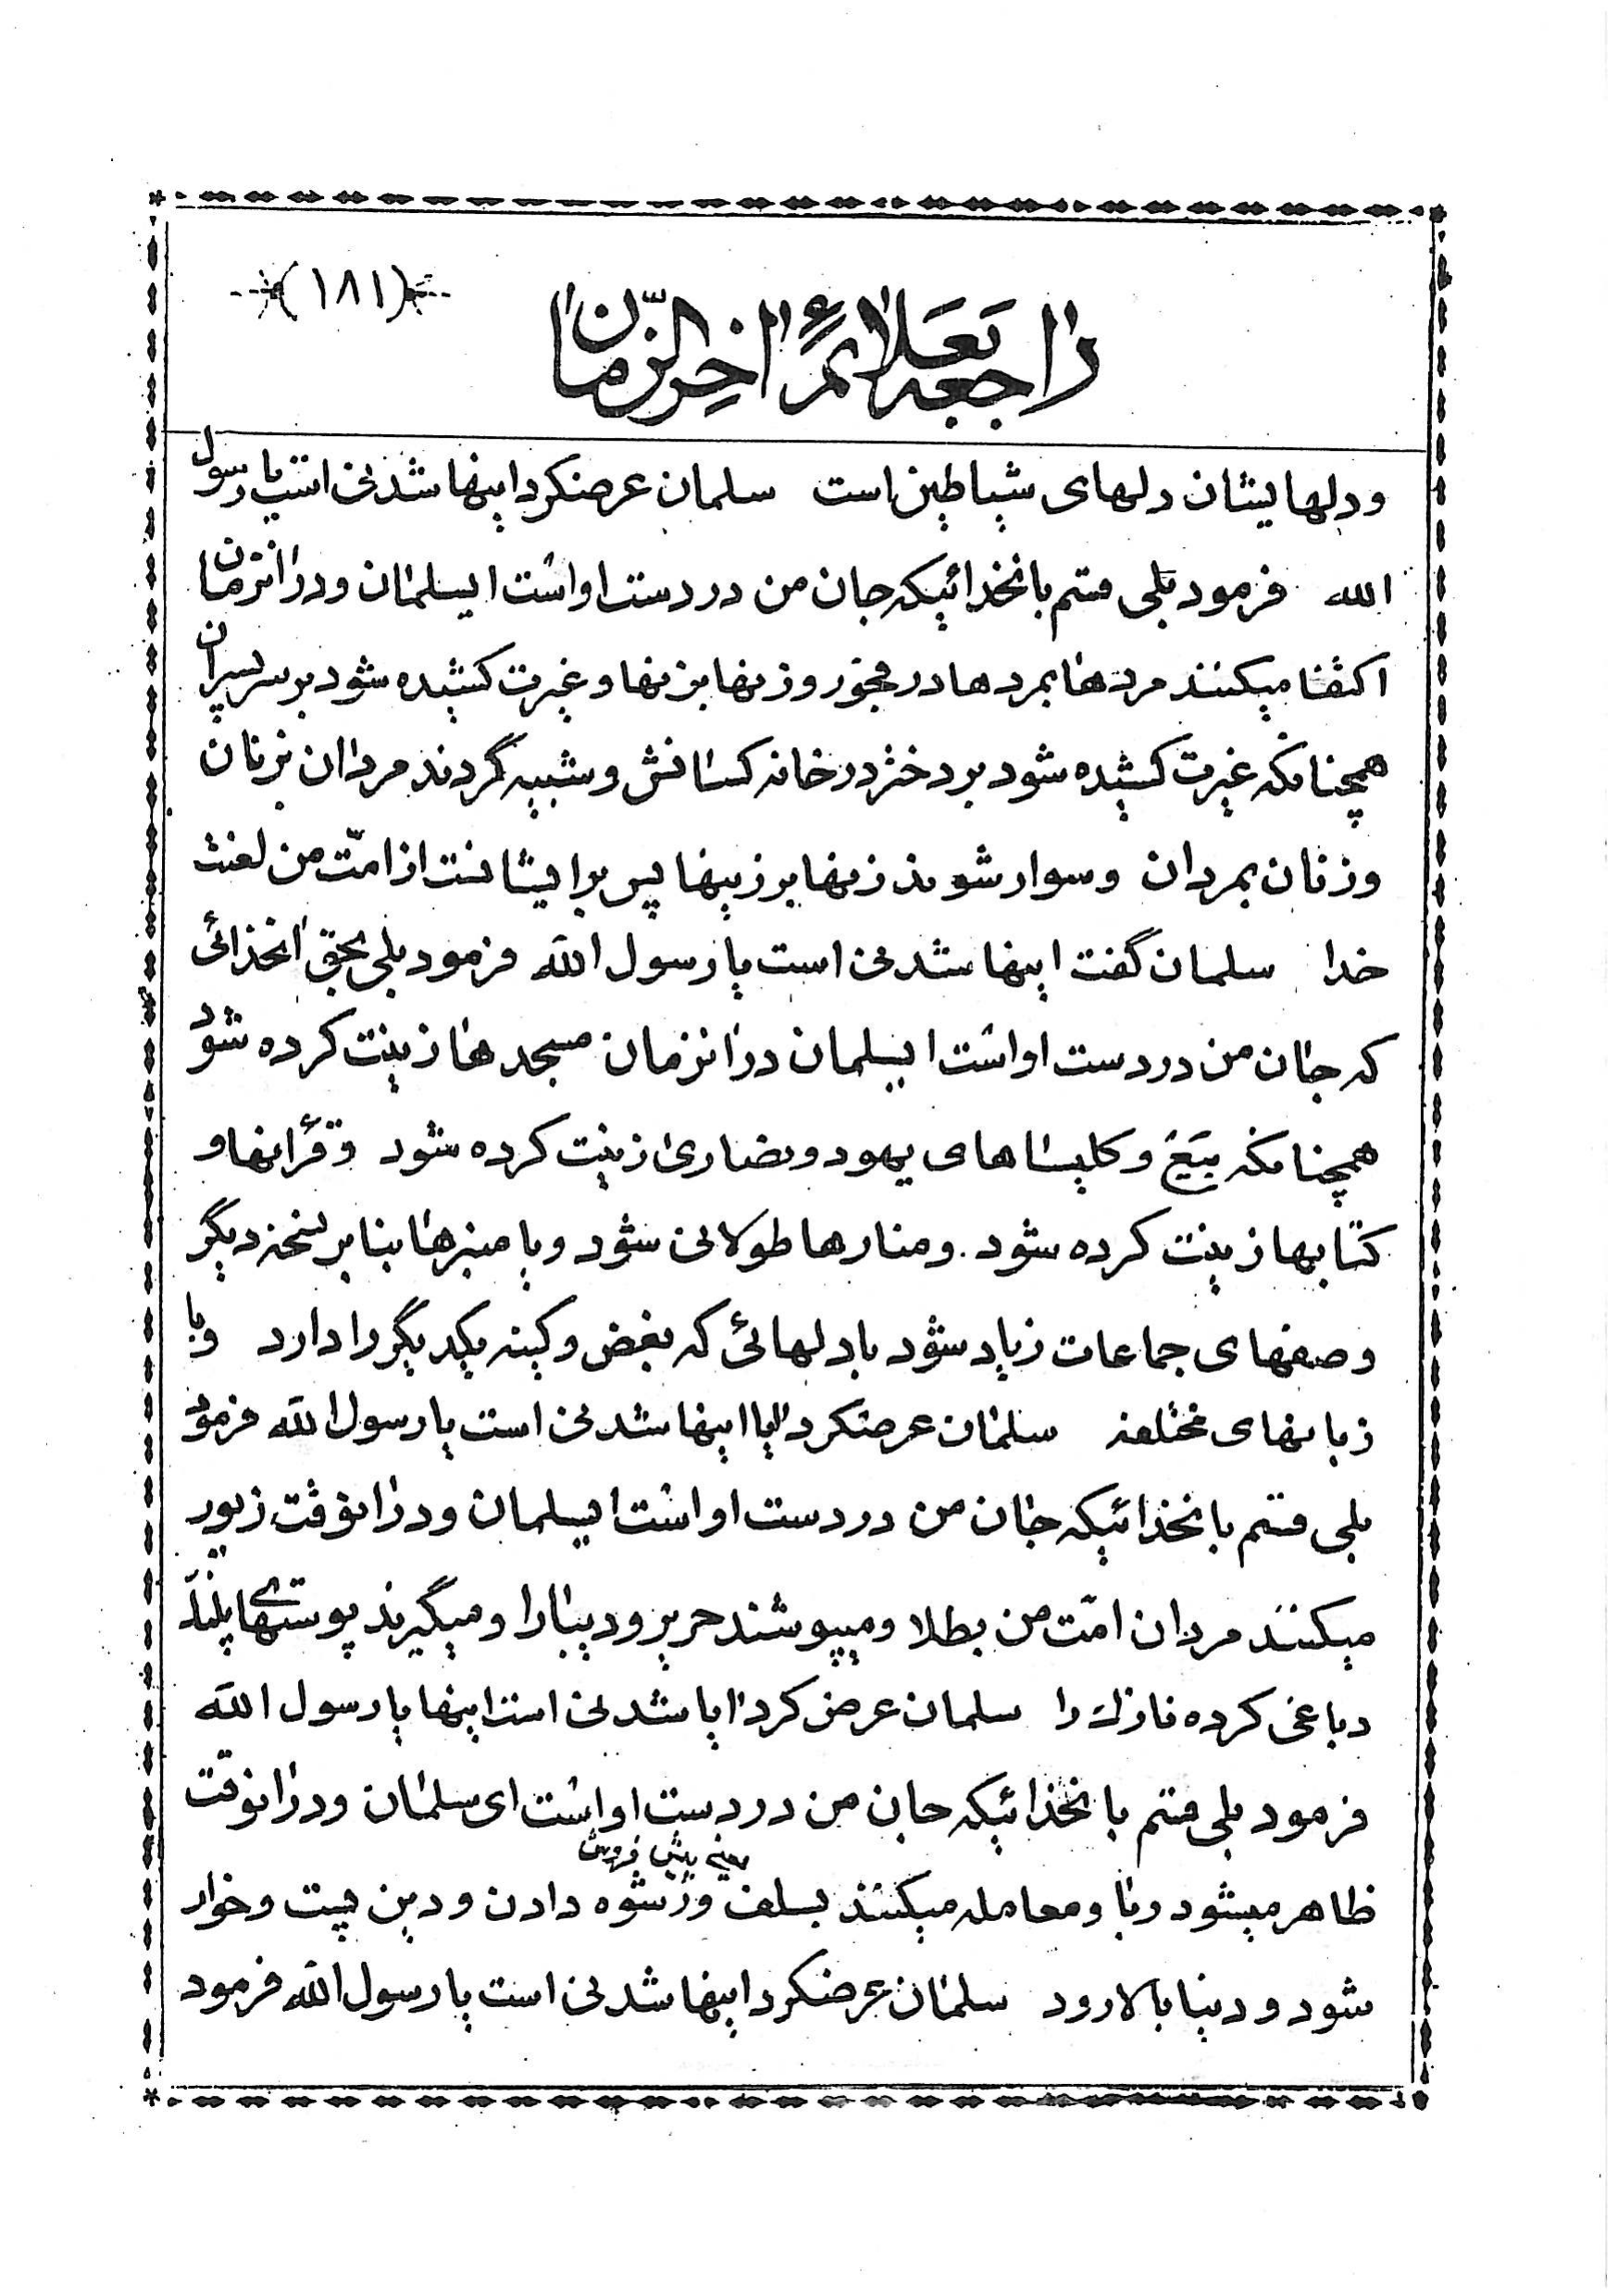 (۱۸۱)
راجعه بعلائم آخر الزّمان
و دلهایشان دلهای شیاطین است سلمان عرضکرد اینها شدنی است یا رسول
الله فرمود بلی قسم بانخدائیکه جان من در دست اوست ایسلمان و در انزمان
اکتفا میکنند مردها بمردها در فجور و زنها بزنها و غیرت کشیده شود بر سر پسران
همچنانکه غیرت کشیده شود بر دختر در خانه کسانش و شبیه گردند مردان بزنان
و زنان بمردان و سوار شوند زنها بر زینها پس برایشانست از امّت من لعنت
خدا سلمان گفت اینها شدنی است یا رسول الله فرمود بلی بحق انخدائی
که جان من در دست اوست ایسلمان در انزمان مسجدها زینت کرده شود
همچنانکه بیَع و کلیساهای یهود و نصاری زینت کرده شود و قرانها و
کتابها زینت کرده شود. و منارها طولانی شود و یا منبرها بنا بر نسخه دیگر
و صفهای جماعات زیاد شود با دلهائی که بغض و کینه یکدیگر را دارد و با
زبانهای مختلفه سلمان عرضکرد ایا اینها شدنی است یا رسول الله فرمود
بلی قسم بانخدائیکه جان من در دست اوست ایسلمان و در انوقت زیور
میکنند مردان امّت من بطلا و میپوشند حریر و دیبا را و میگیرند پوستهای پلنگ
دباغی کرده نازک را سلمان عرض کرد ایا شدنی است اینها یا رسول الله
فرمود بلی قسم بانخدائیکه جان من در دست اوست ای سلمان و در انوقت
یعنی پیش فروش
ظاهر میشود ربا و معامله میکنند بسلف و رشوه دادن و دین پست و خوار
شود و دنیا بالا رود سلمان عرضکرد اینها شدنی است یا رسول الله فرمود